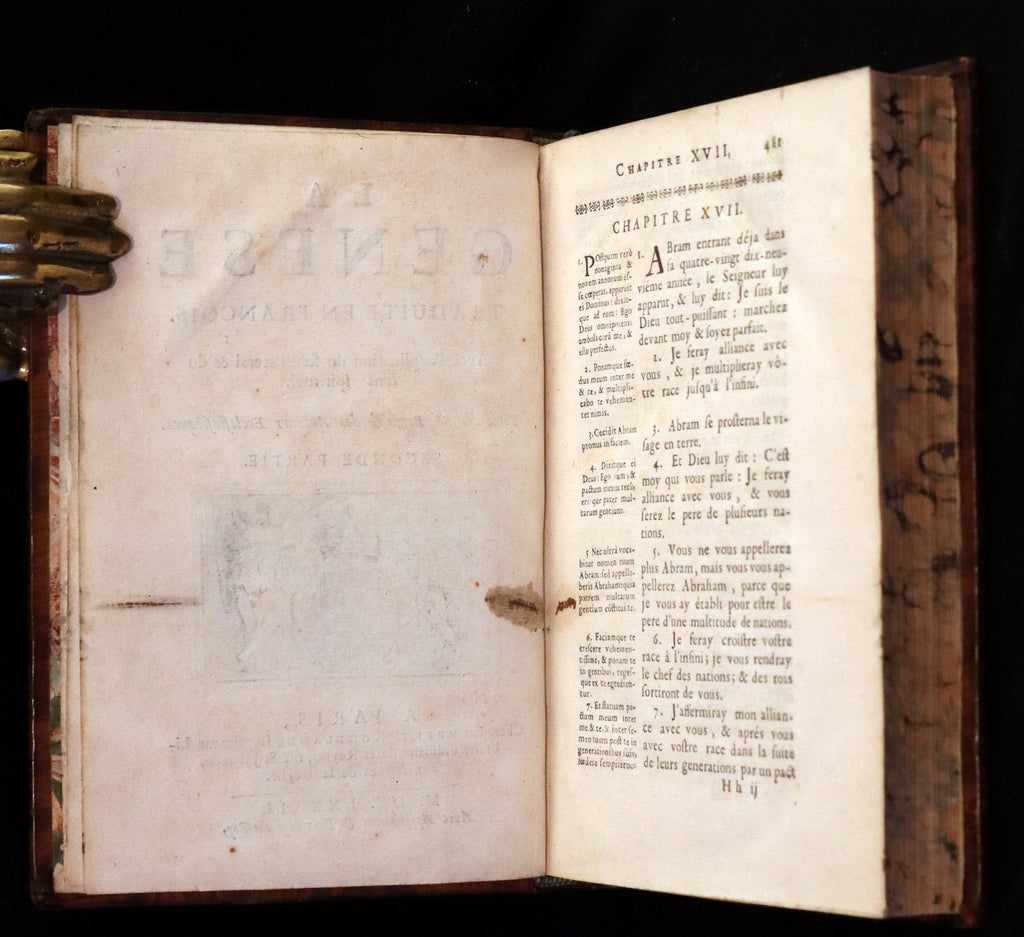 LA
GENESE
TRADUITE EN FRANÇOIS,
SECONDE PARTIE.
A PARIS,
CHAPITRE XVII, 481
CHAPITRE XVII.
1. POstquam verò
nonaginta &
novem annorum es-
se cœperat, apparuit
ei Dominus: dixit-
que ad eum: Ego
Deus omnipotens:
ambula corā me, &
esto perfectus.
2. Ponamque fœ-
dus meum inter me
& te, & multipli-
cabo te vehemen-
ter nimis.
3. Cecidit Abram
pronus in faciem.
4. Dixitque ei
Deus: Ego sum, &
pactum meum tecū,
erisque pater mul-
tarum gentium.
5 Nec ultrà voca-
bitur nomen tuum
Abram sed appella-
beris Abraham: quia
patrem multarum
gentium cōstitui te.
6. Faciamque te
crescere vehemen-
tissimè, & ponam te
in gentibus, reges-
que ex te egredien-
tur.
7. Et statuam pa-
ctum meum inter
me & te, & inter se-
men tuum post te in
generationibus suis,
fœdere sempiterno:
1. ABram entrant déja dans
sa quatre-vingt dix-neu-
viéme année, le Seigneur luy
apparut, & luy dit: Je suis le
Dieu tout-puissant: marchez
devant moy & soyez parfait.
2. Je feray alliance avec
vous, & je multiplieray vô-
tre race jusqu'à l'infini.
3. Abram se prosterna le vi-
sage en terre.
4. Et Dieu luy dit: C'est
moy qui vous parle: Je feray
alliance avec vous, & vous
serez le pere de plusieurs na-
tions.
5. Vous ne vous appellerez
plus Abram, mais vous vous ap-
pellerez Abraham, parce que
je vous ay établi pour estre le
pere d'une multitude de nations.
6. Je feray croistre vostre
race à l'infini; je vous rendray
le chef des nations; & des rois
sortiront de vous.
7. J'affermiray mon allian-
ce avec vous, & aprés vous
avec vostre race dans la suite
de leurs generations par un pact
H h ij